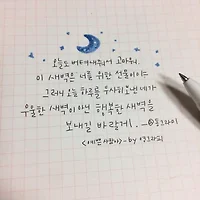 오늘도 버텨내줘서 고마워.
이 새벽은 너를 위한 선물이야
그러니 오늘 하루를 무사히 보낸 네가
우울한 새벽이 아닌 행복한 새벽을
보내길 바랄게.
- by